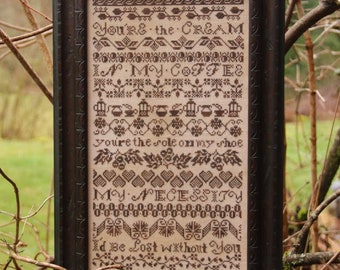 YOU'RE the CREAM
IN MY COFFEE
you're the sole on my shoe
MY NECESSITY
I'd Be Lost without You